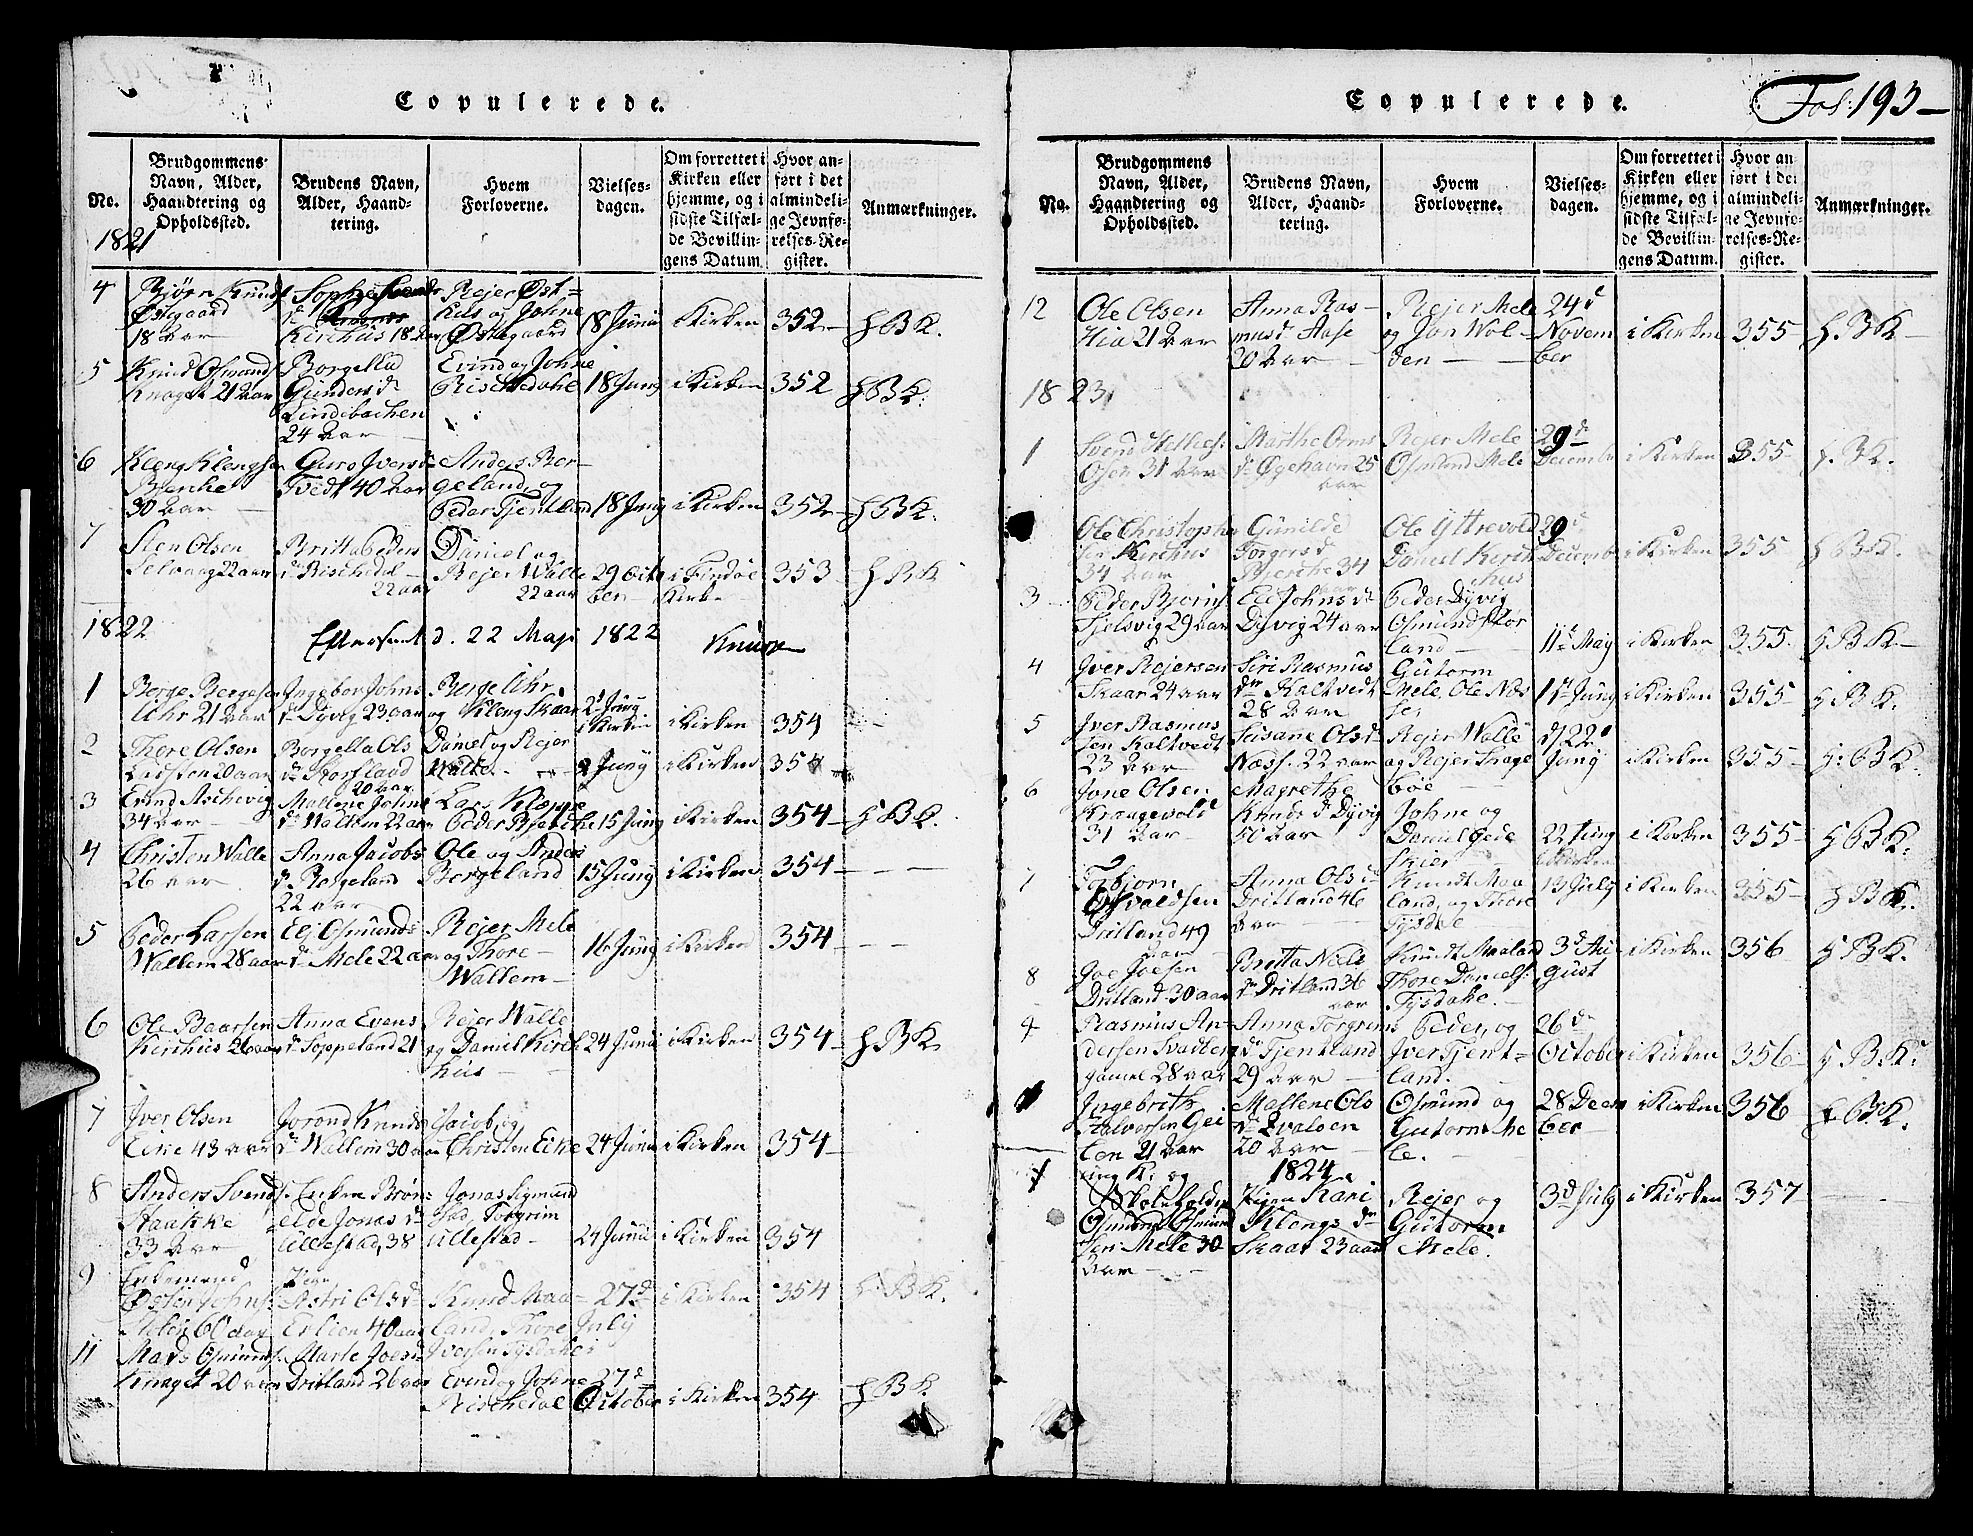 Copulerede.
No.
Brudgommens Navn, Alder, Haandtering og Opholdssted.
Brudens Navn, Alder, Haandtering.
Hvem Forloverne.
Vielses-dagen.
Om forrettet i Kirken eller hjemme, og i sidste Tilfælde Bevillingens Datum.
Hvor anført i det almindelige Jevnførelses-Register.
Anmærkninger.
1821
4 Bjørn Knuds Østgaard 18 Aar
Kirchus 18 Aar
Rejer Østhus og Johne Østegaard
18 Junii i Kirken 352 HBK.
5 Knud Osmunds Knaget 21 Aar
Borgella Gunders dr Lindebachen 24 Aar
Evind og Johne Rischedahl
18 Juny i Kirken 352 HBK.
6 Kleng Klengsen Bjerke 30 Aar
Guro Iversdr Tvedt 40 Aar
Anders Bergeland, og Peder Tjentland
18 Juny i Kirken 352 HBK.
7 Sten Olsen Selvaag 22 aar
Britta Peders dr Rischedal 22 aar
Daniel og Rejer Walle 22 aar
29 Octoben i Findøe Kirke 353 HBK
1822
Efterseet d. 22 Maji 1822
1 Berge Bergesen Uhr 21 Aar
Ingebor Johns dr Dyvig 23 aar
Berge Uhr og Kleng Skaar
2d Juny i Kirken i Kirken 354
2 Thore Olsen Ladsten 20 aar
Borgella Ols dr Storsland 20 aar
Daniel og Rejer Walle
2 Juny i Kirken 354
3 Evind Aschevig 34 Aar
Mallene Johns dr Wallem 22 aar
Lars Kloppe Peder Bjerche
15 Juny i Kirken 354 HBK.
4 Christen Walle 26 aar
Anna Jacobs dr Bergeland 22 aar
Ole og Anders Bergeland
15 Juny i Kirken 354
5 Peder Larsen Wallem 28 aar
Elj Osmunds dr Mele 22 aar
Rejer Mele og Thore Wallem
16 Juny i Kirken 354
6 Ole Baarsen Kirchus 26 aar
Anna Evens dr Soppeland 21
Rejer Walle og Daniel Kirchhus
24 Junii i Kirken 354 HBK
7 Iver Olsen Eike 43 aar
Jorond Knuds dr Wallem 30 aar
Jacob og Christen Eike
24 Junii i Kirken 354
8 Anders Svends. Staakke 33 Aar
Enken Brønelde Jonas dr Ullestad, 38
Jonas Sigmundstad, Torgrim Ullestad
24 Junii i Kirken 354
9 Enkemand Østen Johns. Stølen 60 aar
Pigen Astri Ols dr Erlien 40 aar
Knud Maaland, Thore Iversen Tysdahl
27d July i Kirken 354 HBK.
11 Mads Osmunds. Knaget 20 aar
Marte Joes dr Dritland 26 aar
Evind og Johne Rischedal
27d October i Kirken 354 HBK.
Copulerede.
Fol: 193
No.
Brudgommens Navn, Alder, Haandtering og Opholdssted.
Brudens Navn, Alder, Haandtering.
Hvem Forloverne.
Vielses-dagen.
Om forrettet i Kirken eller hjemme, og i sidste Tilfælde Bevillingens Datum.
Hvor anført i det almindelige Jevnførelses-Register.
Anmærkninger.
12 Ole Olsen Hia 21 Aar
Anna Rasmusd Aase 20 Aar
Rejer Mele og Jon Wolden
24d November i Kirken 355 HBK
1823
1 Svend Helljes. Osen 31 aar
Marthe Orms dr Øgehavn 25 aar
Rejer Mele Osmund Mele
29d Decembr i Kirken 355 HBK.
Ole Christophersen Kirchus 34 aar
Gunilde Torgers dr Bjerche 34
Ole Yttrevold Daniel Kirchhus
29d Decembr i Kirken 355 HBK.
3 Peder Bjørns. Fjelsvig 29 aar
Eli Johns dr Dyvig 24 aar
Peder Dyvig Osmund Størland
11d May i Kirken 355 HBK
4 Iver Rejersen Skaar 24 aar
Siri Rasmus dr Kaltvedt 28 Aar
Gutorm Mele, Ole Næsse,
1d Juny i Kirken 355 HBK.
5 Iver Rasmussen Kaltvedt 23 Aar
Seisane Ols dr Næss. 22 aar
Rejer Walle og Rejer Hage
d. 22d Juny i Kirken 355 HBK
6 Jone Olsen Krongevold 31 Aar
Magrethe Knuds dr Dyvig 50 aar
bøe Johne og Daniel Gedeskier
22 Juny i Kirken 355 HBK.
7 Torbjorn Osvaldsen Dritland 49 aar
Anna Ols dr Dritland 46 Aar
Knudt Maaland, og Thore Tysdahl
13 July i Kirken 355 HBK.
8 Joe Joesen Dritland 30 aar
Britta Niels dr Dritland 36 aar
Knudt Maaland Thore Daniels. Tysdahl.
3d August i Kirken 356 HBK.
9 Rasmus Andersen Svadbergamel 28 aar
Anna Torgrims dr Tjentland 29 Aar
Peder og Iver Tjentland.
26d October i Kirken 356 HBK
Ingebrith Halvorsen Geilen 21 Aar
Mallene Ols dr Evalsen 20 Aar
Osmund og Gutorm Mele.
28 Decmber i Kirken 356 HBK.
1824
1 ung K: og Skoleholder Osmund Osmundsen Mele 30 aar
Pigen Kari Klengs dr Skaar 23 aar
Rejer og Gutorm Mele.
3d July i Kirken 357